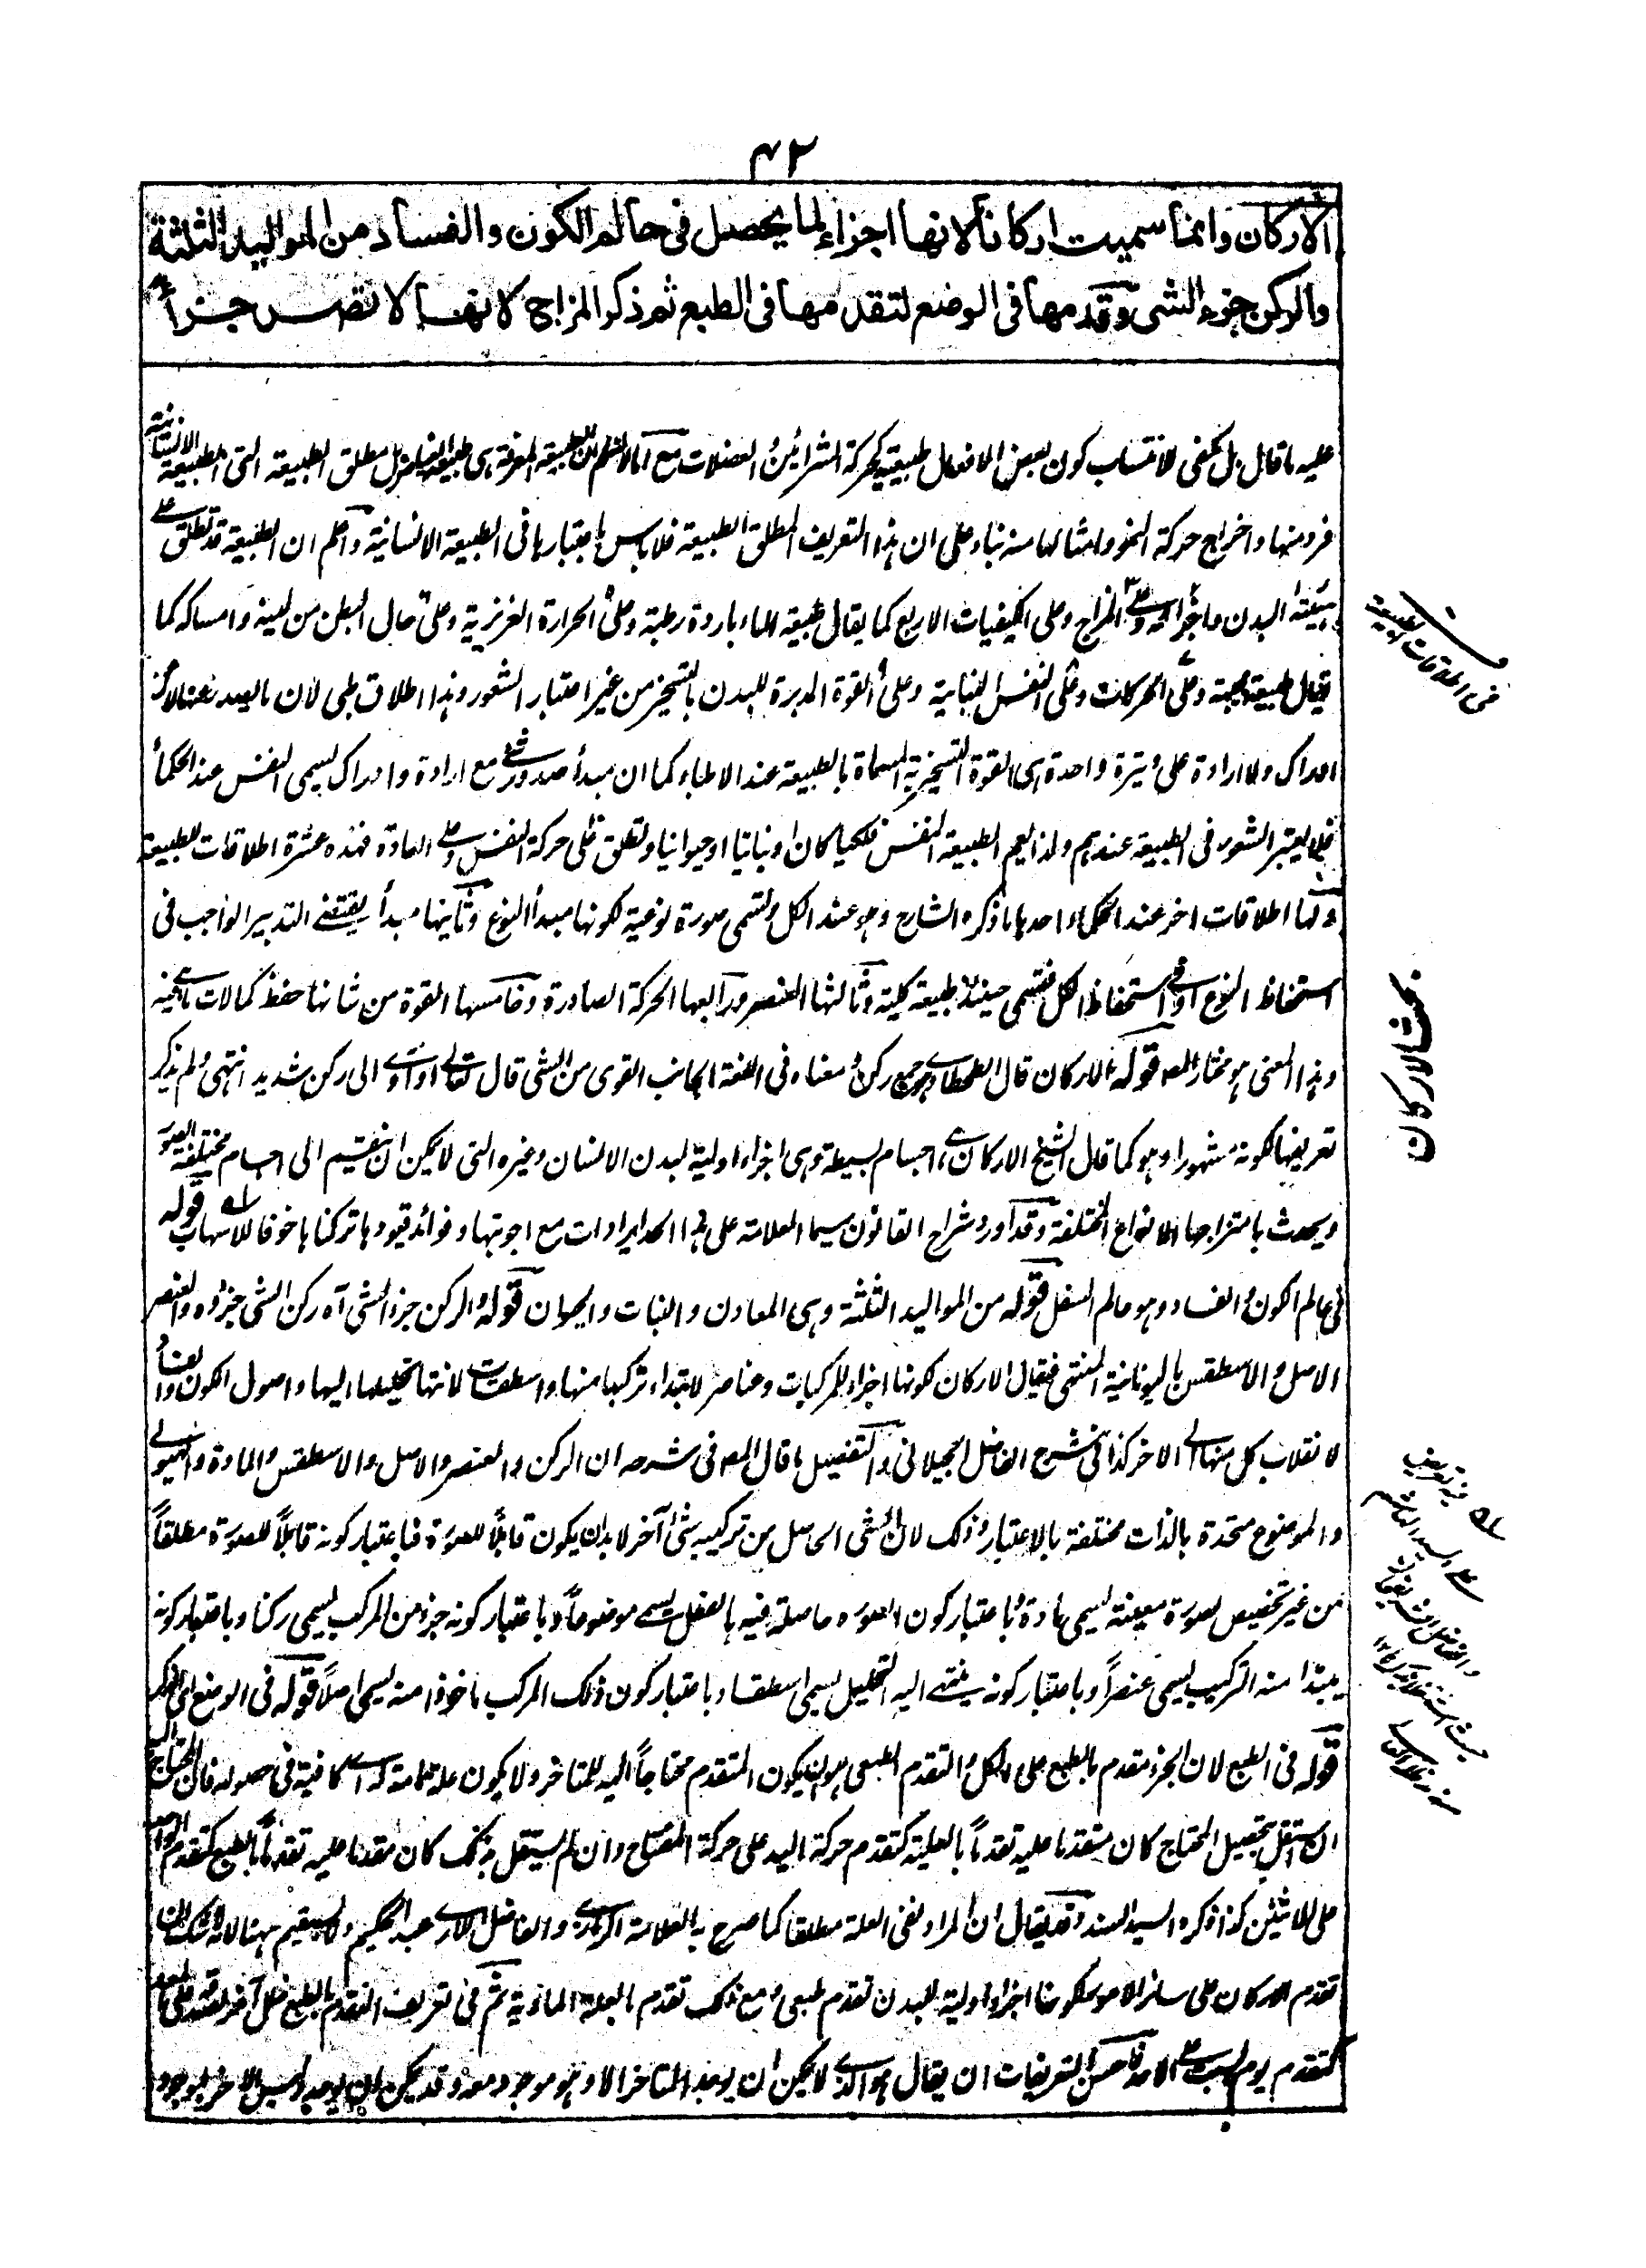 ٤٢
الاركان وانما سميت اركانا لانها اجزاء لما يحصل فى عالم الكون والفساد من المواليد الثلثة
والركن جزء الشى وقدمها فى الوضع لتقدمها فى الطبع ثم ذكر المزاج لانها لا تصير جزأ
عليه ما قال بل يكفى لانتساب كون بعض الافعال طبيعية كحركة الشرائين العضلات مع بل مطلق الطبيعة التى الطبيعة الانسانية
فرد منها واخراج حركة النمو وامثالها منه بناء على ان هذا التعريف لمطلق الطبيعة فلا باس باعتبارها فى الطبيعة الانسانية واعلم ان الطبيعة قد تطلق على
هيئة البدن واجزائه وعلى المزاج وعلى الكيفيات الاربع كما يقال طبيعة الماء باردة رطبة وعلى الحرارة الغريزية وعلى حال البطن من لينه وامساكه كما
يقال طبيعة مجيبة وعلى الحركات وعلى النفس النباتية وعلى القوة المدبرة للبدن بالتسخير من غير اعتبار الشعور وهذا اطلاق طبى لان ما يصدر عنه
ادراك ولا ارادة على وتيرة واحدة هى القوة التسخيرية المسماة بالطبيعة عند الاطباء كما ان مبدأ صدور شئ مع ارادة وادراك يسمى النفس عند الحكماء
فلا يعتبر الشعور فى الطبيعة عندهم ولذا يعم الطبيعة النفس فلكيا كان او نباتيا او حيوانيا وتطلق على حركة النفس وعلى العادة فهذه عشرة اطلاقات للطبيعة
ولها اطلاقات اخر عند الحكماء احدها ما ذكره الشارح وهو عند الكل وتسمى صورة نوعية لكونها مبدأ النوع وثانيها مبدأ يقتضى التدبير الواجب فى
استحفاظ النوع او فى استحفاظ الكل فتسمى حينئذ طبيعة كلية وثالثها العنصر ورابعها الحركة الصادرة وخامسها القوة من شانها حفظ كمالات ما هى فيه
وهذا المعنى هو مختار المص قوله الاركان قال هو جمع ركن معناه فى اللغة الجانب القوى من الشى قال تعالى او آوى الى ركن شديد انتهى ولم يذكر
تعريفها لكونه مشهورا وهو كما قال الشيخ الاركان هى اجسام بسيطة وهى اجزاء اولية لبدن الانسان وغيره التى لا يمكن ان تنقسم الى اجسام مختلفة الصور
ويحدث بامتزاجها الانواع المختلفة وقد اورد شراح القانون سيما العلامة على هذا الحد ايرادات مع اجوبتها وفوائد قيودها تركناها خوفا للاسهاب قوله
فى عالم الكون والفساد وهو عالم السفل قوله من المواليد الثلثة وهى المعادن والنبات والحيوان قوله والركن جزء الشى آه ركن الشى جزؤه والعنصر
الاصل والاسطقس باليونانية المنتهى فيقال الاركان لكونها اجزاء للمركبات وعناصر لابتداء تركبها منها واسطقسات لانتهاء تحليلها اليها واصول الكون والفساد
لانقلاب كل منها الى الاخر كذا فى شرح الفاضل الجيلانى والتفصيل ما قال المص فى شرحه ان الركن والعنصر والاصل والاسطقس والمادة والهيولى
والموضوع متحدة بالذات مختلفة بالاعتبار وذلك لان الشى الحاصل من تركيبه شئ آخر لا بد ان يكون قابلاً للصورة فباعتبار كونه قابلاً للصورة مطلقاً
من غير تخصيص بصورة معينة يسمى مادة وباعتبار كون الصورة حاصلة فيه بالفعل يسمى موضوعاً وباعتبار كونه جزء من المركب يسمى ركنا وباعتبار كونه
يبتدأ منه التركيب يسمى عنصراً وباعتبار كونه ينتهى اليه التحليل يسمى اسطقسا وباعتبار كون ذلك المركب ماخوذا منه يسمى اصلاً قوله فى الوضع اى الذكر
قوله فى الطبع لان الجزء مقدم بالطبع على الكل والتقدم الطبعى هو ان يكون المتقدم محتاجاً اليه للمتاخر ولا يكون علة تامة له اى كافية فى حصوله فان المحتاج اليه
ان استقل بتحصيل المحتاج كان متقدما عليه تقدماً بالعلية كتقدم حركة اليد على حركة المفتاح وان لم يستقل بذلك كان مقدما عليه تقدماً بالطبع كتقدم الواحد
على الاثنين كذا ذكره السيد السند وقد يقال ان المراد نفى العلة مطلقا كما صرح به العلامة والفاضل عبد الحكيم ولا يستقيم ههنا لانه لا شك ان
تقدم الاركان على سائر الامور لكونها اجزاء اولية للبدن تقدم طبعى ومع ذلك تقدم بالعلة المادية ثم فى تعريف التقدم بالطبع
كتقدم يوم السبت على الاحد فاحسن التعريفات ان يقال هو الذى لا يمكن ان يوجد المتاخر الا وهو موجود معه وقد يمكن ان يوجد وليس الاخر بموجود
ف اطلاقات الطبيعة
بحث الاركان